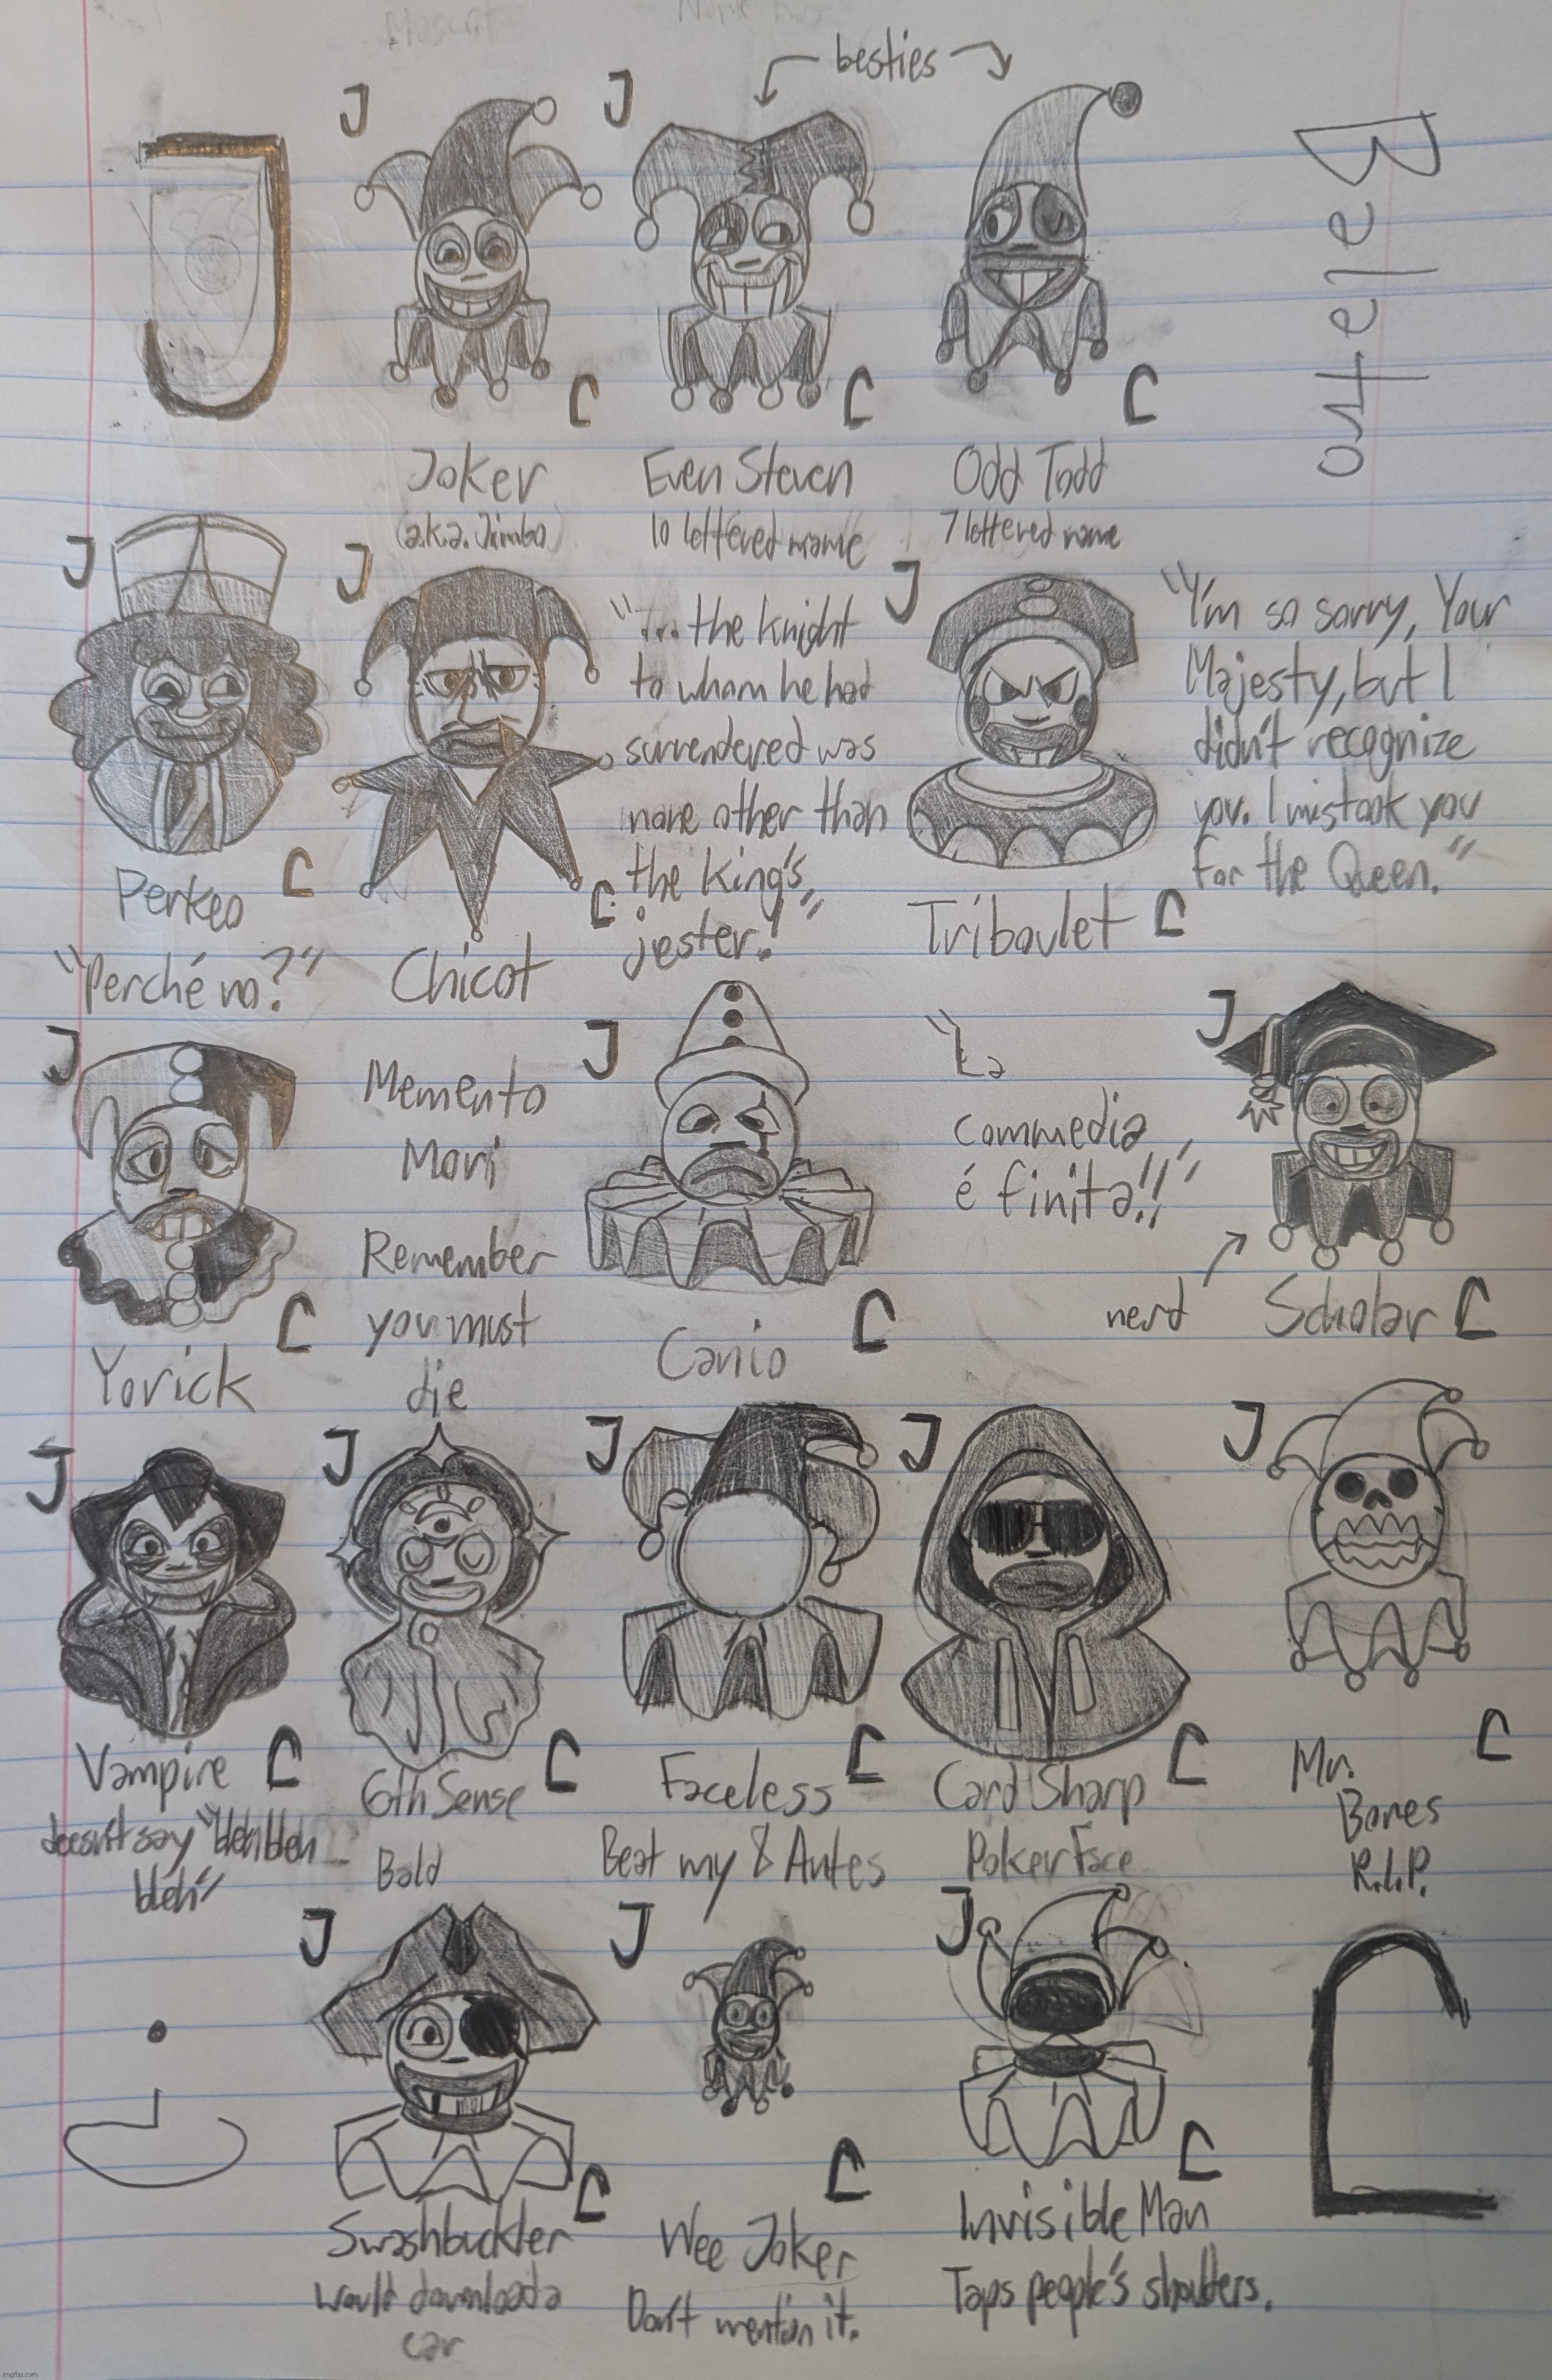 Mascot
besties
J
J
J
Balatro
C
C
C
Joker
(a.k.a. Jimbo)
Even Steven
10 lettered name
Odd Todd
7 lettered name
J
J
J
"... the knight
to whom he had
surrendered was
none other than
the king's
jester!"
"I'm so sorry, Your
Majesty, but I
didn't recognize
you. I mistook you
for the Queen."
C
C
C
Perkeo
"Perché no?"
Chicot
Triboulet
J
J
J
Memento
Mori
Remember
you must
die
"La
commedia
é finita!!"
nerd
C
C
C
Yorick
Canio
Scholar
J
J
J
J
J
C
C
C
C
C
Vampire
doesn't say "bleh bleh
bleh"
6th Sense
Bald
Faceless
Beat my 8 Antes
Card Sharp
Poker Face
Mr.
Bones
R.I.P.
J
J
J
C
C
C
C
Swashbuckler
Would download a
car
Wee Joker
Don't mention it.
Invisible Man
Taps people's shoulders.
imgflip.com